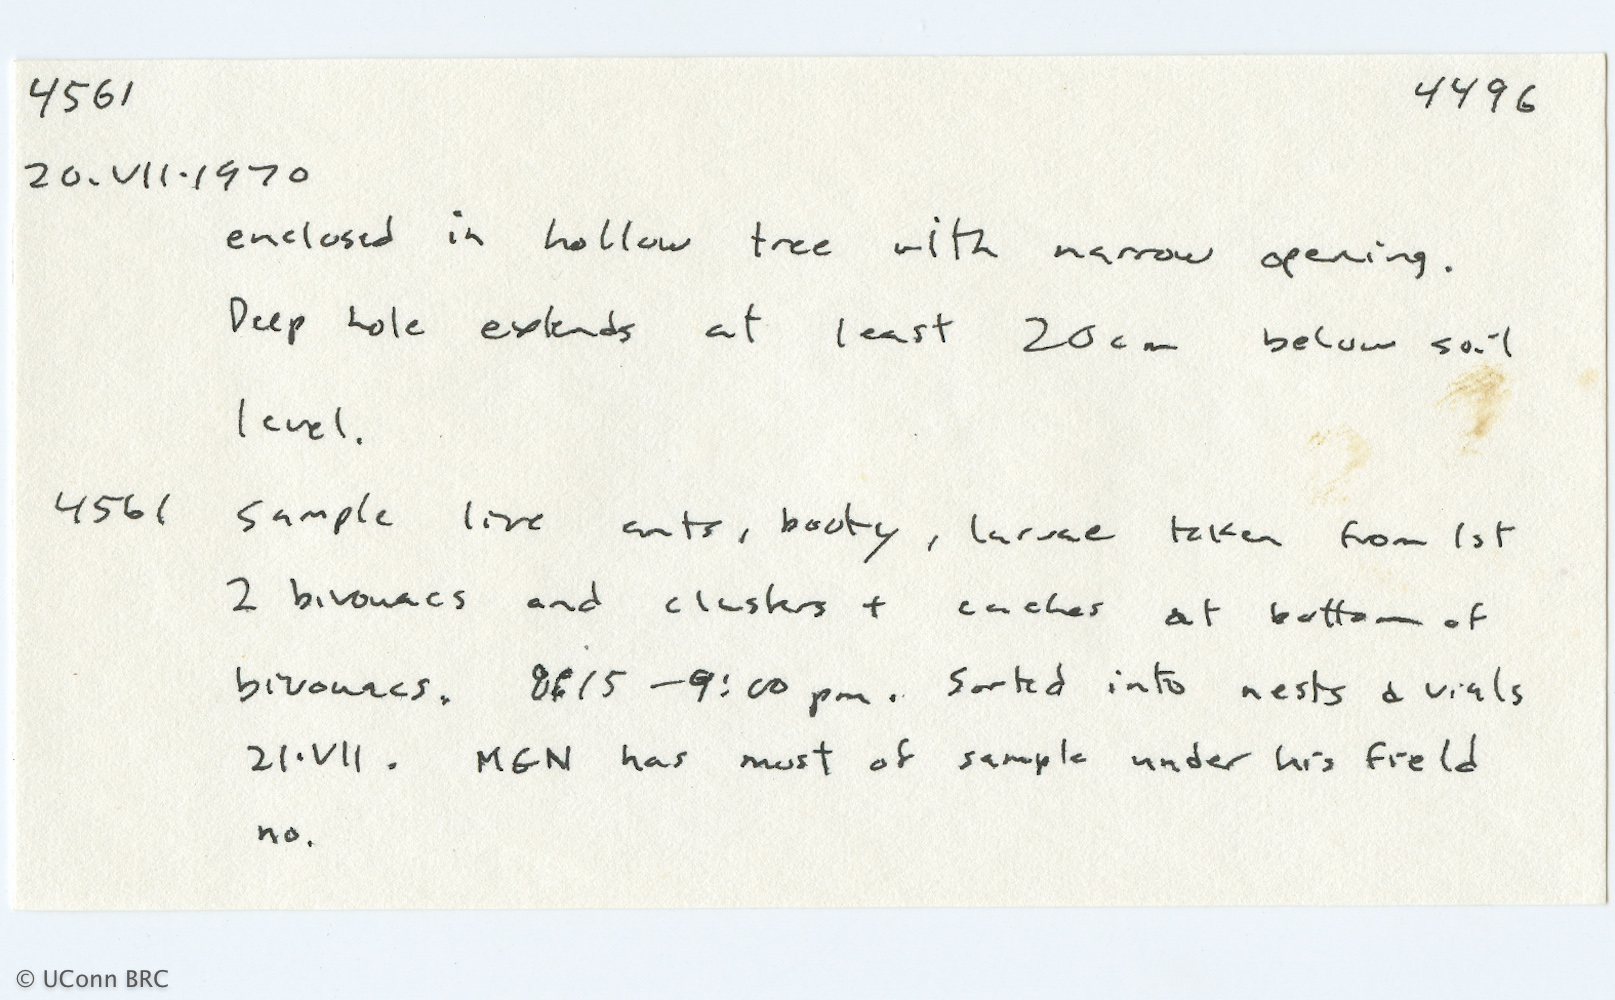 4561 4496
20.VII.1970
enclosed in hollow tree with narrow opening.
Deep hole extends at least 20cm below soil
level.
4561 Sample live ants, booty, larvae taken from 1st
2 bivouacs and clusters + caches at bottom of
bivouacs. 8:15 - 9:00 pm. Sorted into nests & vials
21.VII. MGN has most of sample under his field
no.
© UConn BRC